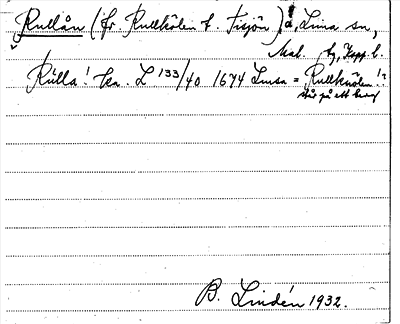 Rullån (fr Rullkölen t. Tisjön) å, Lima sn,
Mal. tg, Kopp. l.
Rülla! Ka. L 133/40 1674 Limsa = "Rullknölen"!?
står på ett berg
B. Lindén 1932.